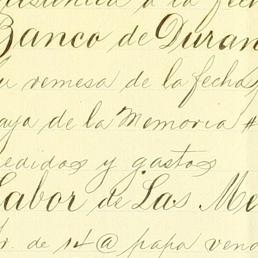 distancia a la fech
Banco de Duran
su remesa de la fecha y
aya de la Memoria #
pedidos y gastos
Labor de Las Me
or. de 14 @ papa vend